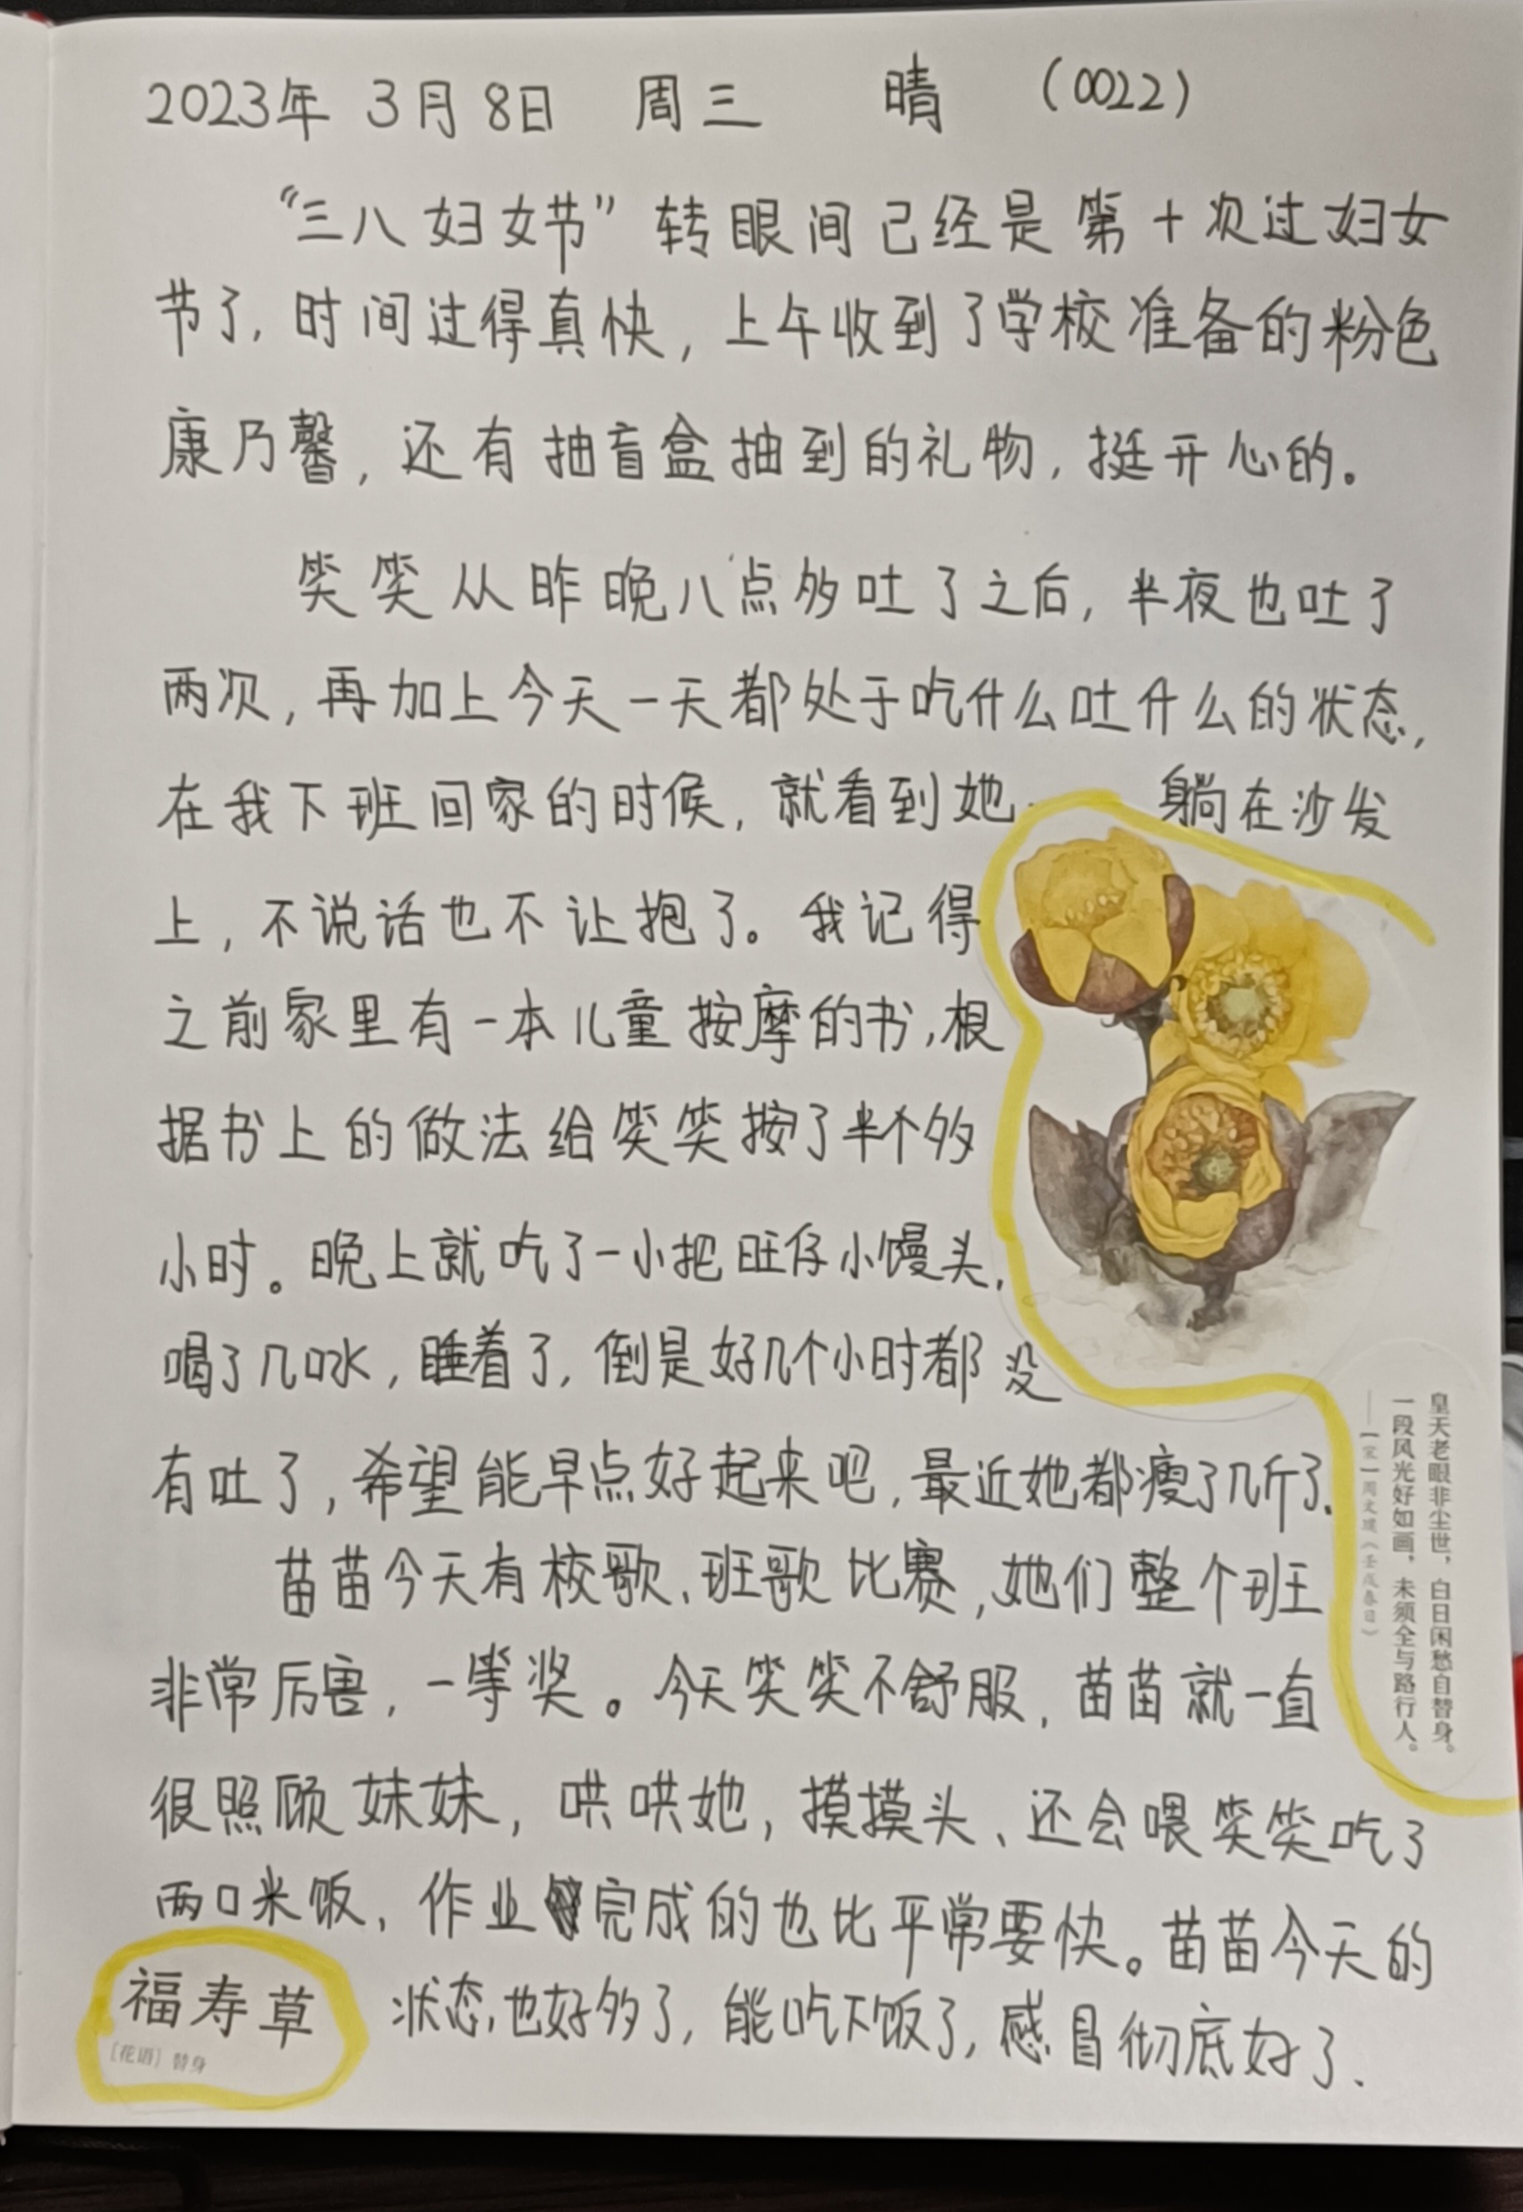 2023年 3月 8日 周三 晴 (0022)
“三八妇女节”转眼间己经是第十次过妇女
节了,时间过得真快,上午收到了学校准备的粉色
康乃馨,还有抽盲盒抽到的礼物,挺开心的。
笑笑从昨晚八点多吐了之后,半夜也吐了
两次,再加上今天一天都处于吃什么吐什么的状态,
在我下班回家的时候,就看到她 躺在沙发
上,不说话也不让抱了。我记得
之前家里有一本儿童按摩的书,根
据书上的做法给笑笑按了半个多
小时。晚上就吃了一小把旺仔小馒头,
喝了几口水,睡着了,倒是好几个小时都没
有吐了,希望能早点好起来吧,最近她都瘦了几斤了.
苗苗今天有校歌、班歌比赛,她们整个班
非常厉害,一等奖。今天笑笑不舒服,苗苗就一直
很照顾妹妹,哄哄她,摸摸头、还会喂笑笑吃了
两口米饭,作业完成的也比平常要快。苗苗今天的
状态,也好多了,能吃下饭了,感冒彻底好了、
皇天老眼非尘世,白日闲愁自替身。
一段风光好如画,未须全与路行人。
——[宋]周文璞《壬戌春日》
福寿草
〔花语〕替身